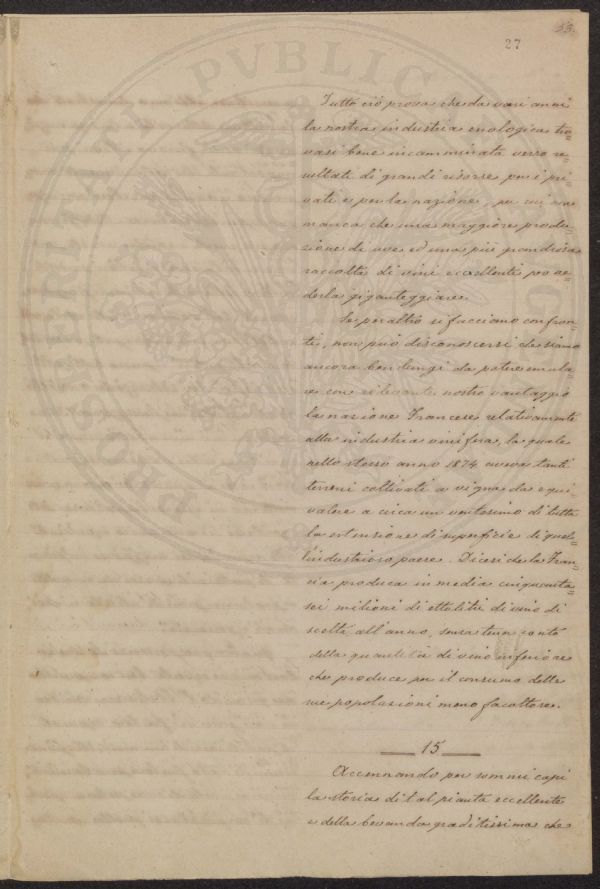 53.
27
Tutto ciò prova che da vari anni
la nostra industria enologica tro=
vasi bene incamminata verso re=
sultati di grandi risorse per i pri=
vati e per la nazione, per cui non
manca che una maggiore produ=
zione di uve ed una più grandiosa
raccolta di vini eccellenti per ve=
derla giganteggiare.
Se peraltro si facciano confron=
ti, non può disconoscersi che siamo
ancora ben lungi da potere emula
re con rilevante nostro vantaggio
la nazione Francese relativamente
alla industria vinifera, la quale
nello stesso anno 1874 aveva tanti
terreni coltivati a vigna da equi=
valere a circa un ventesimo di tutta
la estensione di superficie di quel=
l'industrioso paese. Dicesi che la Fran=
cia produca in media cinquanta=
sei milioni di ettolitri di vino di
scelta all'anno, senza tener conto
della quantità di vino inferiore
che produce per il consumo delle
sue popolazioni meno facoltose.
15
Accennando per sommi capi
la storia di tal pianta eccellente
e della bevanda graditissima che
PROSPERITATI PVBLICAE